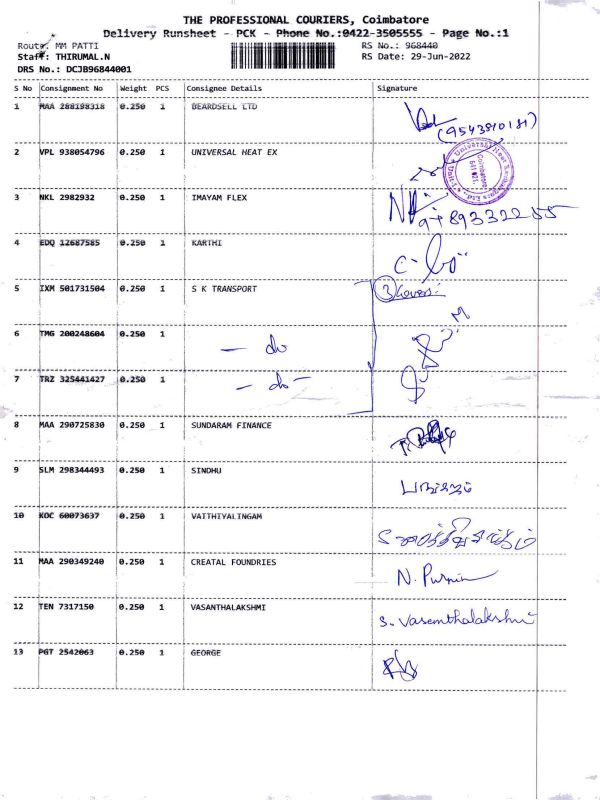 THE PROFESSIONAL COURIERS, Coimbatore
Delivery Runsheet - PCK - Phone No.:0422-3505555 - Page No.:1
Route. MM PATTI RS No.: 968440
Staff: THIRUMAL.N RS Date: 29-Jun-2022
DRS No.: DCJB96844001
S No Consignment No Weight PCS Consignee Details Signature
1 MAA 288198318 0.250 1 BEARDSELL LTD
(9543810181)
2 VPL 938054796 0.250 1 UNIVERSAL HEAT EX
3 NKL 2982932 0.250 1 IMAYAM FLEX
4 EDQ 12687585 0.250 1 KARTHI
5 IXM 501731504 0.250 1 S K TRANSPORT 3 Covers:
6 TMG 200248604 0.250 1 - do
7 TRZ 325441427 0.250 1 - do -
8 MAA 290725830 0.250 1 SUNDARAM FINANCE
9 SLM 298344493 0.250 1 SINDHU
10 KOC 60073637 0.250 1 VAITHIYALINGAM
11 MAA 290349240 0.250 1 CREATAL FOUNDRIES N.
12 TEN 7317150 0.250 1 VASANTHALAKSHMI S. Vasanthalakshmi
13 PGT 2542063 0.250 1 GEORGE